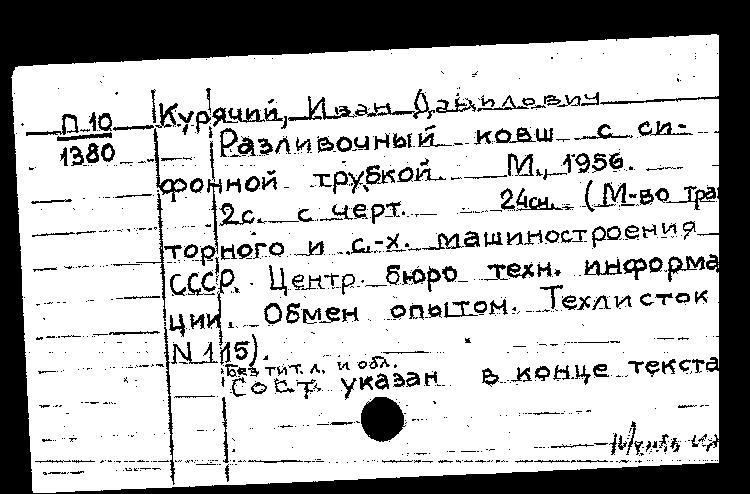 П 10
1380
Курячий, Иван Данилович
Разливочный ковш с си-
фонной трубкой. М., 1956.
2с. с черт. 24см. (М-во тра
торного и с.-х. машиностроения
СССР. Центр. бюро техн. информа
ции. Обмен опытом. Техлисток
N 115).
Без тит. л. и обл.
Сост. указан в конце текста